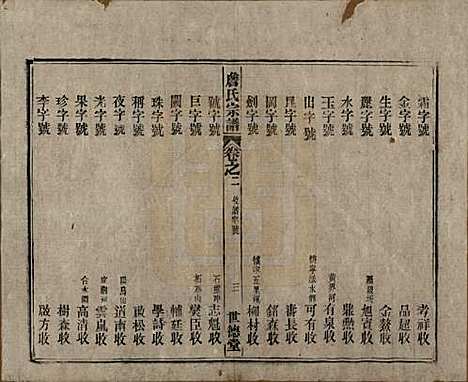 霜字號 考祥收
金字號 品超收
生字號 金收
麗字號 旭寶收
水字號 鼎勲收
玉字號 黄界河 有泉收
出字號 可有收
崑字號 壽長收
岡字號 銘森收
劍字號 柳村收
詹氏宗譜 卷之二 字號 三 世德堂
號字號 志魁收
巨字號 燮臣收
闕字號 廷收
珠字號 學詩收
稱字號 啟松收
夜字號 道南收
光字號 雲嵐收
果字號 高清收
珍字號 樹森收
李字號 啟方收